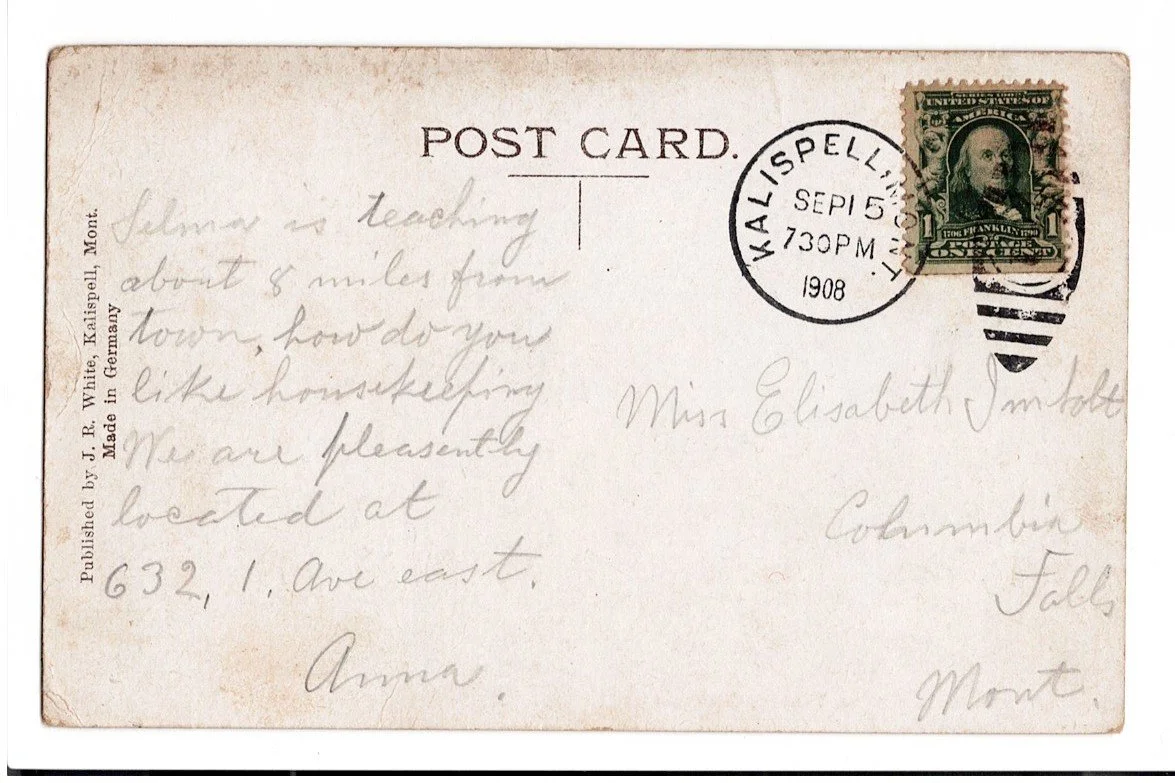 POST CARD.
KALISPELL, MONT.
SEP 15
730 PM
1908
SERIES 1902
UNITED STATES OF
AMERICA
1706 FRANKLIN 1790
1 1
POSTAGE
ONE CENT
Published by J. R. White, Kalispell, Mont.
Made in Germany
Selma is teaching
about 8 miles from
town, how do you
like housekeeping
We are pleasently
located at
632, 1. Ave east.
Anna.
Miss Elisabeth Imholt
Columbia
Falls
Mont.